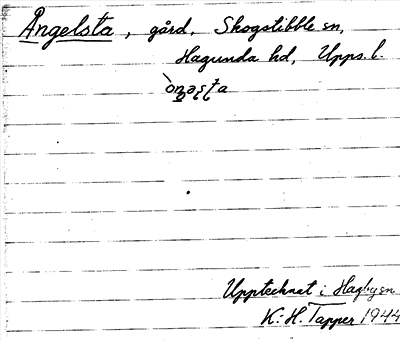 Ångelsta, gård, Skogstibble sn,
Hagunda hd, Upps. l.
Upptecknat i Hagby sn
K. H. Tapper 1944